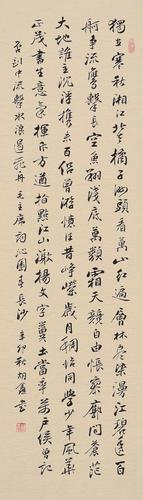 獨立寒秋湘江北去橘子洲頭看萬山紅遍層林盡染漫江碧透百
舸爭流鷹擊長空魚翔淺底萬類霜天競自由悵寥廓問蒼茫
大地誰主沉浮攜來百侶曾游憶往昔崢嶸歲月稠恰同學少年風華
正茂書生意氣揮斥方遒指點江山激揚文字糞土當年萬戶侯曾記
否到中流擊水浪遏飛舟 毛主席詞沁園春長沙 辛卯秋 胡 書